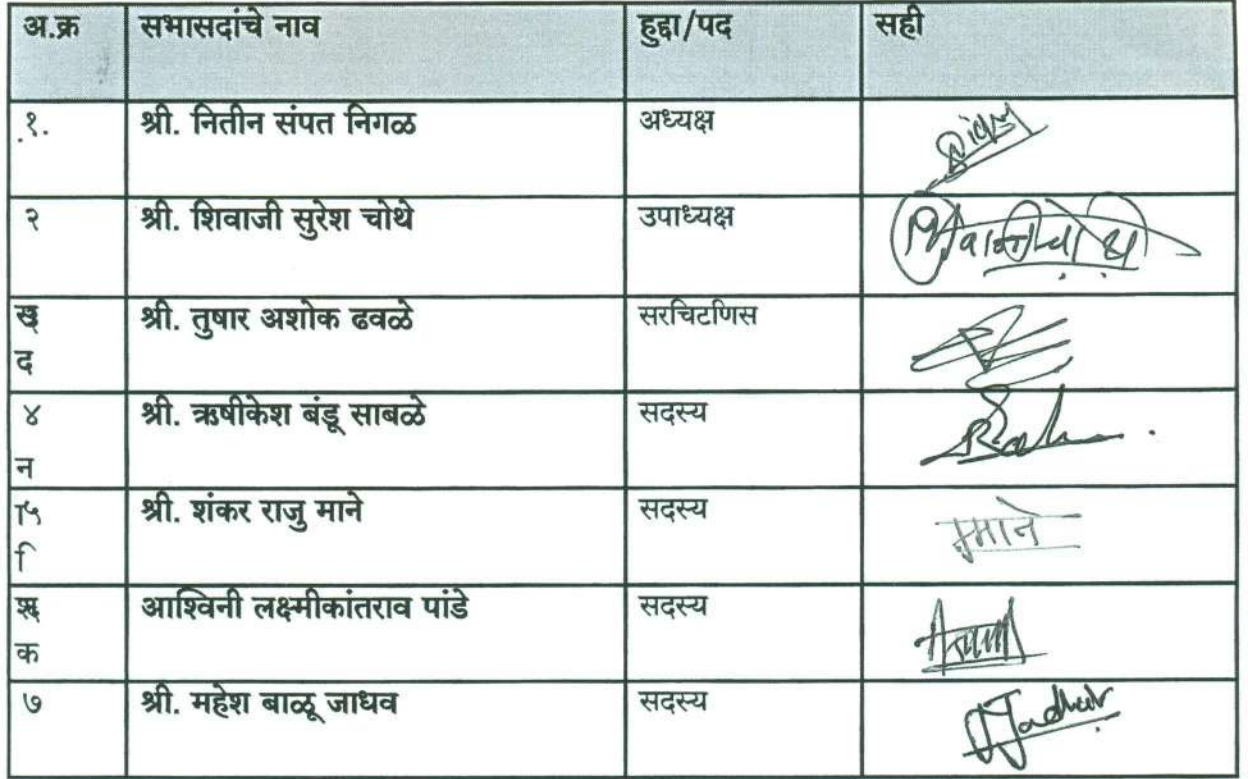 अ.क्र सभासदांचे नाव हुद्दा/पद सही
१. श्री. नितीन संपत निगळ अध्यक्ष
२ श्री. शिवाजी सुरेश चोथे उपाध्यक्ष
श्री. तुषार अशोक ढवळे सरचिटणिस
द
४ श्री. ऋषीकेश बंडू साबळे सदस्य
न
श्री. शंकर राजु माने सदस्य माने
आश्विनी लक्ष्मीकांतराव पांडे सदस्य
क
७ श्री. महेश बाळू जाधव सदस्य Jadhav